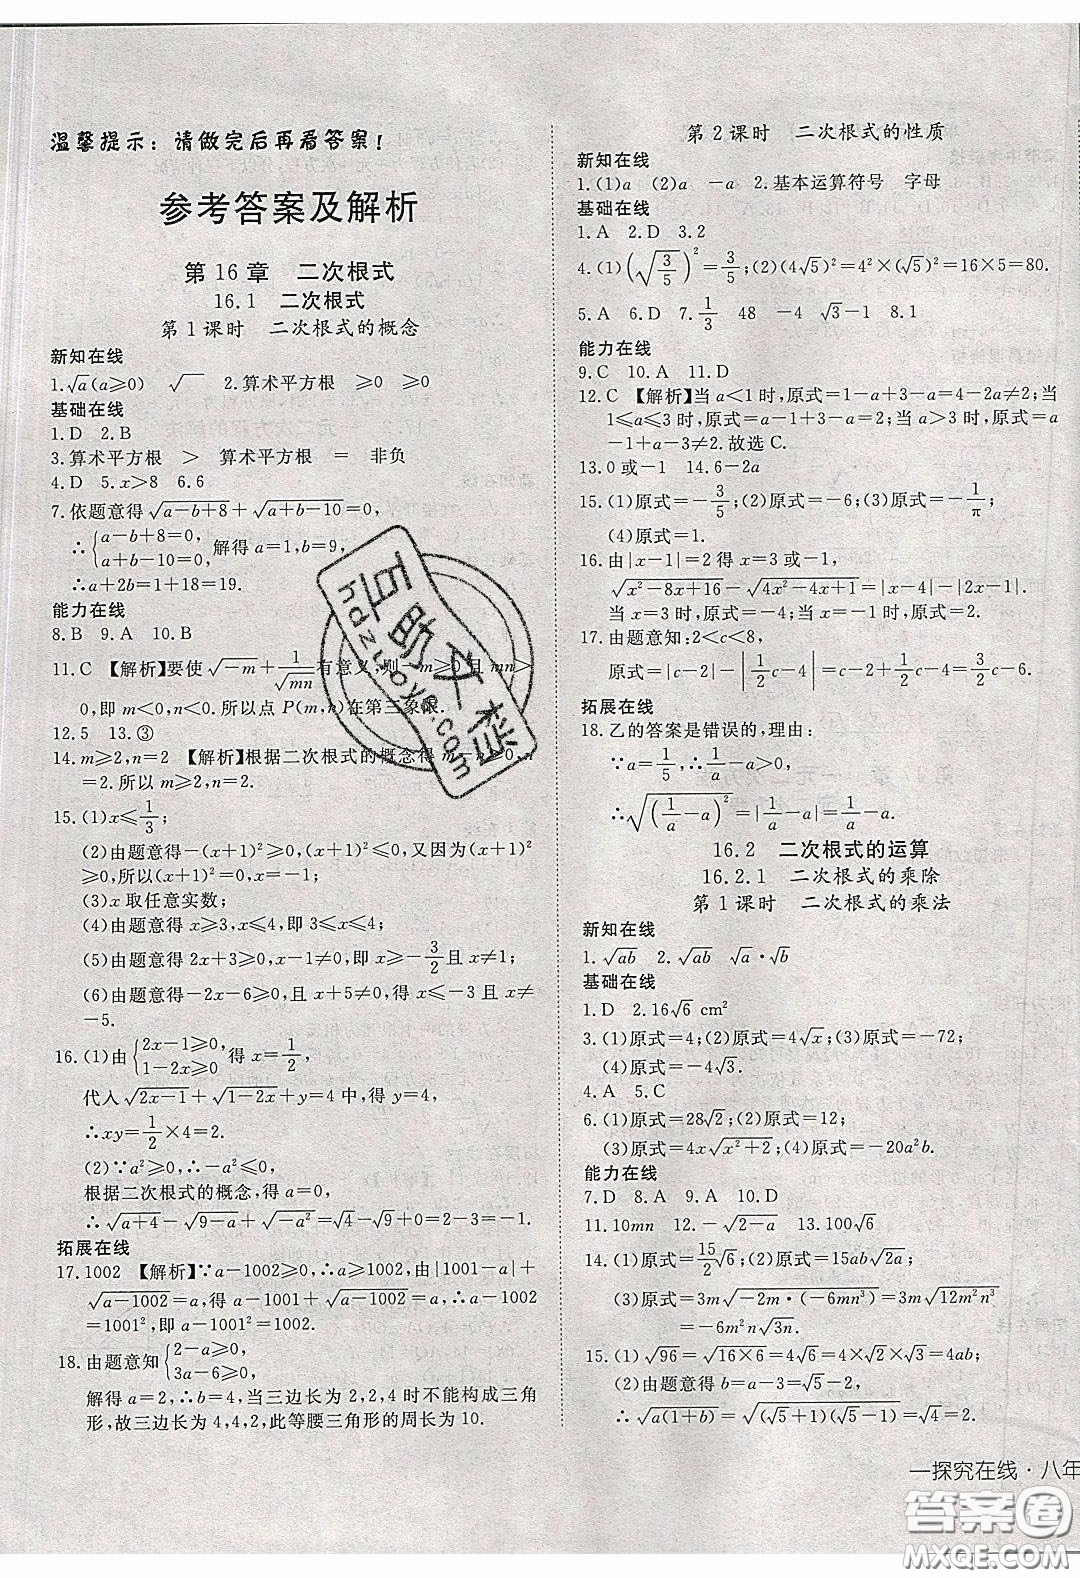 温馨提示：请做完后再看答案！
参考答案及解析
第16章　二次根式
16.1　二次根式
第1课时　二次根式的概念
新知在线
1.√a(a≥0)　√　2.算术平方根　≥0　≥0
基础在线
1.D　2.B
3.算术平方根　>　算术平方根　=　非负
4.D　5.x>8　6.6
7.依题意得√(a-b+8)+√(a+b-10)=0,
∴{a-b+8=0, a+b-10=0, 解得a=1,b=9,
∴a+2b=1+18=19.
能力在线
8.B　9.A　10.B
11.C　【解析】要使√(-m)+1/√(mn)有意义,则-m≥0且mn>
0,即m<0,n<0.所以点P(m,n)在第三象限.
12.5　13.③
14.m≥2,n=2　【解析】根据二次根式的概念得m-n≥0,n
=2.所以m≥2,n=2.
15.(1)x≤1/3;
(2)由题意得-(x+1)²≥0,即(x+1)²≤0,又因为
(x+1)²≥0,所以(x+1)²=0,解得x=-1;
(3)x取任意实数;
(4)由题意得x≥0,x≤4,即0≤x≤4;
(5)由题意得2x+3≥0,x-1≠0,即x≥-3/2且x≠1;
(6)由题意得-2x-6≥0,且x+5≠0,得x≤-3且x≠
-5.
16.(1)由{2x-1≥0, 1-2x≥0 得x=1/2,
代入√(2x-1)+√(1-2x)+y=4中,得y=4,
∴xy=1/2×4=2.
(2)∵a²≥0,∴-a²≤0,
根据二次根式的概念,得a=0,
∴√(a+4)-√(9-a)+√(-a²)=√4-√9+0=2-3=-1.
拓展在线
17.1002　【解析】∵a-1002≥0,∴a≥1002,由|1001-a|+
√(a-1002)=a,得a-1001+√(a-1002)=a,∴a-1002=
1001²,即a-1001²=1002.
18.由题意知{2-a≥0, 3a-6≥0,
解得a=2,∴b=4,当三边长为2,2,4时不能构成三角
形,故三边长为4,4,2,此等腰三角形的周长为10.
第2课时　二次根式的性质
新知在线
1.(1)a　(2)a　-a　2.基本运算符号　字母
基础在线
1.A　2.D　3.2
4.(1)(√(3/5))²=3/5;(2)(4√5)²=4²×(√5)²=16×5=80.
5.A　6.D　7.1/3　48　-4　√3-1　8.1
能力在线
9.C　10.A　11.D
12.C　【解析】当a<1时,原式=1-a+3-a=4-2a≠2;当
1≤a≤3时,原式=a-1+3-a=2;当a>3时,原式=a
-1+a-3≠2.故选C.
13.0或-1　14.6-2a
15.(1)原式=-3/5;(2)原式=-6;(3)原式=-1/π;
(4)原式=1.
16.由|x-1|=2得x=3或-1,
√(x²-8x+16)-√(4x²-4x+1)=|x-4|-|2x-1|.
当x=3时,原式=-4;当x=-1时,原式=2.
17.由题意知:2<c<8,
原式=|c-2|-|1/2c-4|=c-2+1/2c-4=3/2c-6.
拓展在线
18.乙的答案是错误的,理由:
∵a=1/5,∴1/a-a>0,
∴√((1/a-a)²)=|1/a-a|=1/a-a.
16.2　二次根式的运算
16.2.1　二次根式的乘除
第1课时　二次根式的乘法
新知在线
1.√ab　2.√ab　√a·√b
基础在线
1.D　2.16√6 cm²
3.(1)原式=4;(2)原式=4√x;(3)原式=-72;
(4)原式=-4√3.
4.A　5.C
6.(1)原式=28√2;(2)原式=12;
(3)原式=4x√(x²+2);(4)原式=-20a²b.
能力在线
7.D　8.A　9.A　10.D
11.10mn　12.-√(2-a)　13.100√6
14.(1)原式=15/2√6;(2)原式=15ab√(2a);
(3)原式=3m√(-2m·(-6mn³))=3m√(12m²n³)
=6m²n√(3n).
15.(1)√96=√(16×6)=4√6=4×√2×√3=4ab;
(2)由题意得b=a-2=√5-1,
∴√(a(1+b))=√((√5+1)(√5-1))=√4=2.
一探究在线·八年
百助文档
hdzuoye.com
答案圈
MXQE.COM